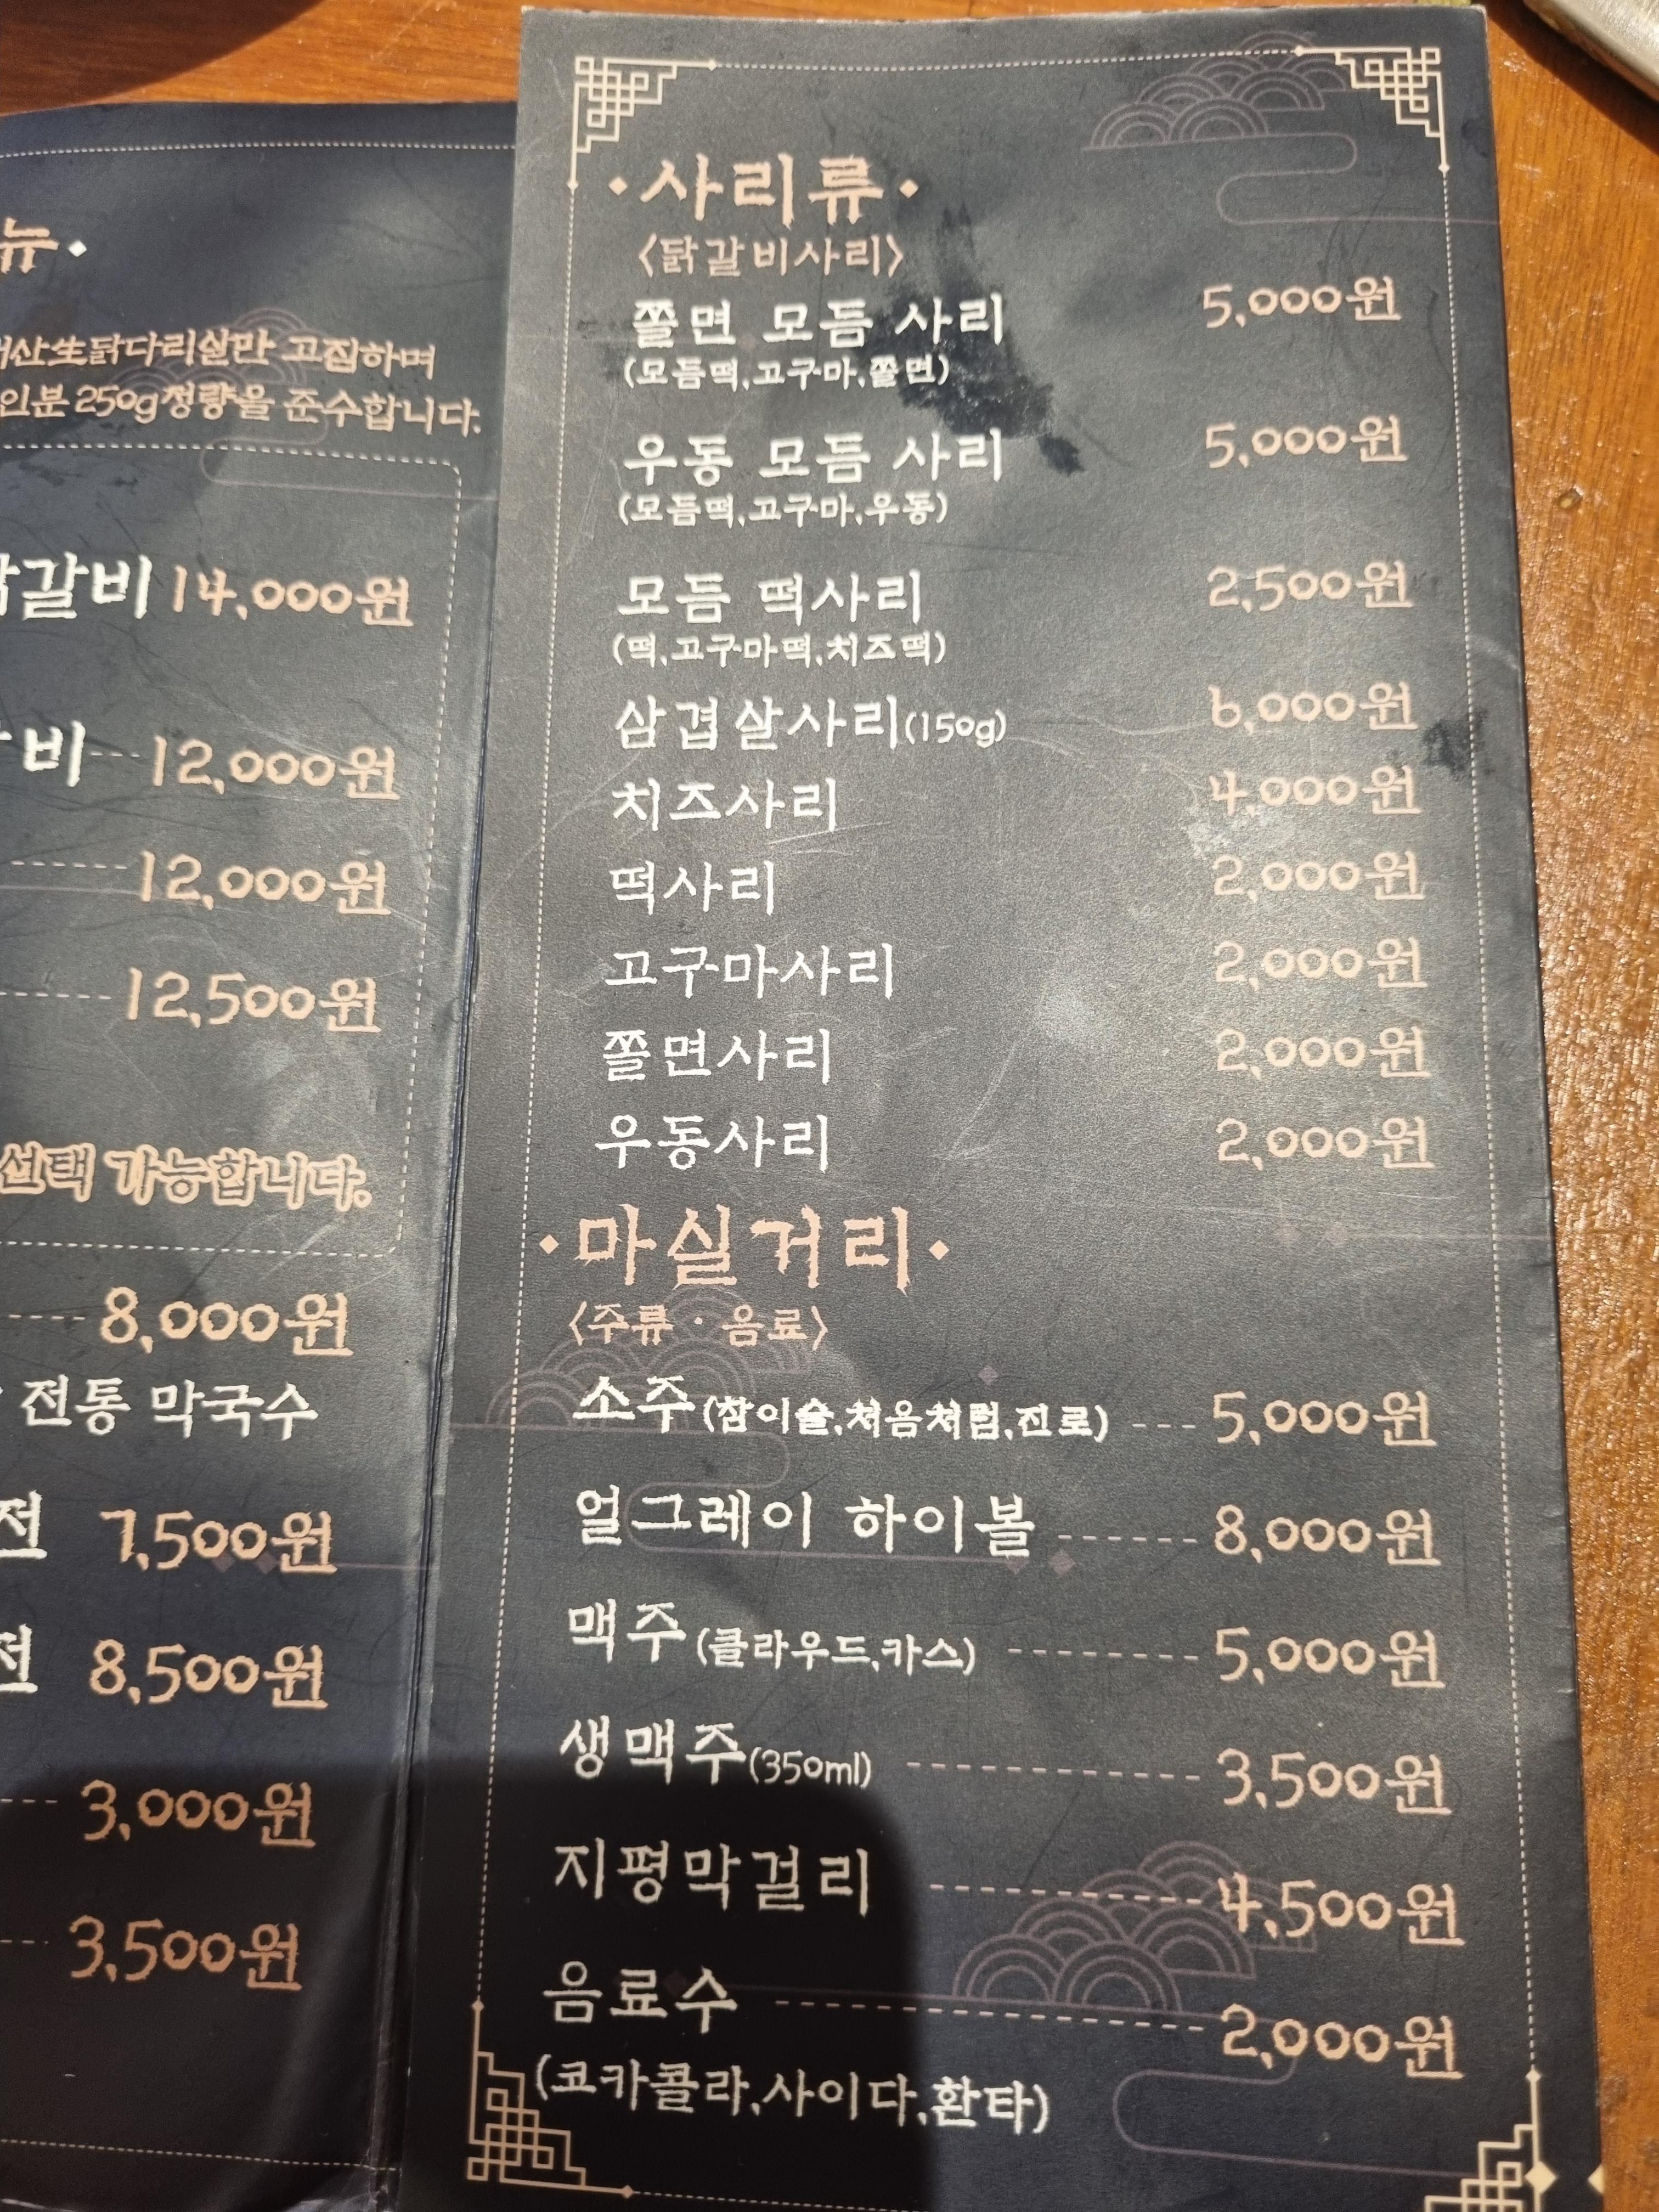 뉴
산生닭다리살만 고집하며
인분 250g정량을 준수합니다.
갈비 14,000원
비 12,000원
12,000원
12,500원
선택 가능합니다.
8,000원
전통 막국수
전 7,500원
전 8,500원
3,000원
3,500원
사리류
〈닭갈비사리〉
쫄면 모듬 사리 5,000원
(모듬떡,고구마,쫄면)
우동 모듬 사리 5,000원
(모듬떡,고구마,우동)
모듬 떡사리 2,500원
(떡,고구마떡,치즈떡)
삼겹살사리(150g) 6,000원
치즈사리 4,000원
떡사리 2,000원
고구마사리 2,000원
쫄면사리 2,000원
우동사리 2,000원
마실거리
〈주류·음료〉
소주(참이슬,처음처럼,진로) 5,000원
얼그레이 하이볼 8,000원
맥주(클라우드,카스) 5,000원
생맥주(350ml) 3,500원
지평막걸리 4,500원
음료수 2,000원
(코카콜라,사이다,환타)